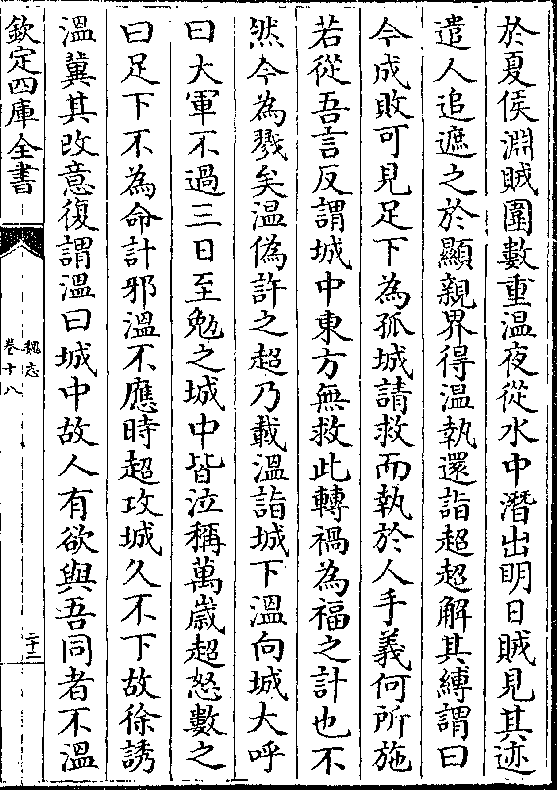 於夏侯淵賊圍數重溫夜從水中潛出明日賊見其迹
遣人追遮之於顯親界得溫執還詣超超解其縛謂曰
今成敗可見足下為孤城請救而執於人手義何所施
若從吾言反謂城中東方無救此轉禍為福之計也不
然今為戮矣溫偽許之超乃載溫詣城下溫向城大呼
曰大軍不過三日至勉之城中皆泣稱萬歲超怒數之
曰足下不為命計邪溫不應時超攻城久不下故徐誘
溫冀其改意復謂溫曰城中故人有欲與吾同者不溫
欽定四庫全書
魏志
卷十八
二十二